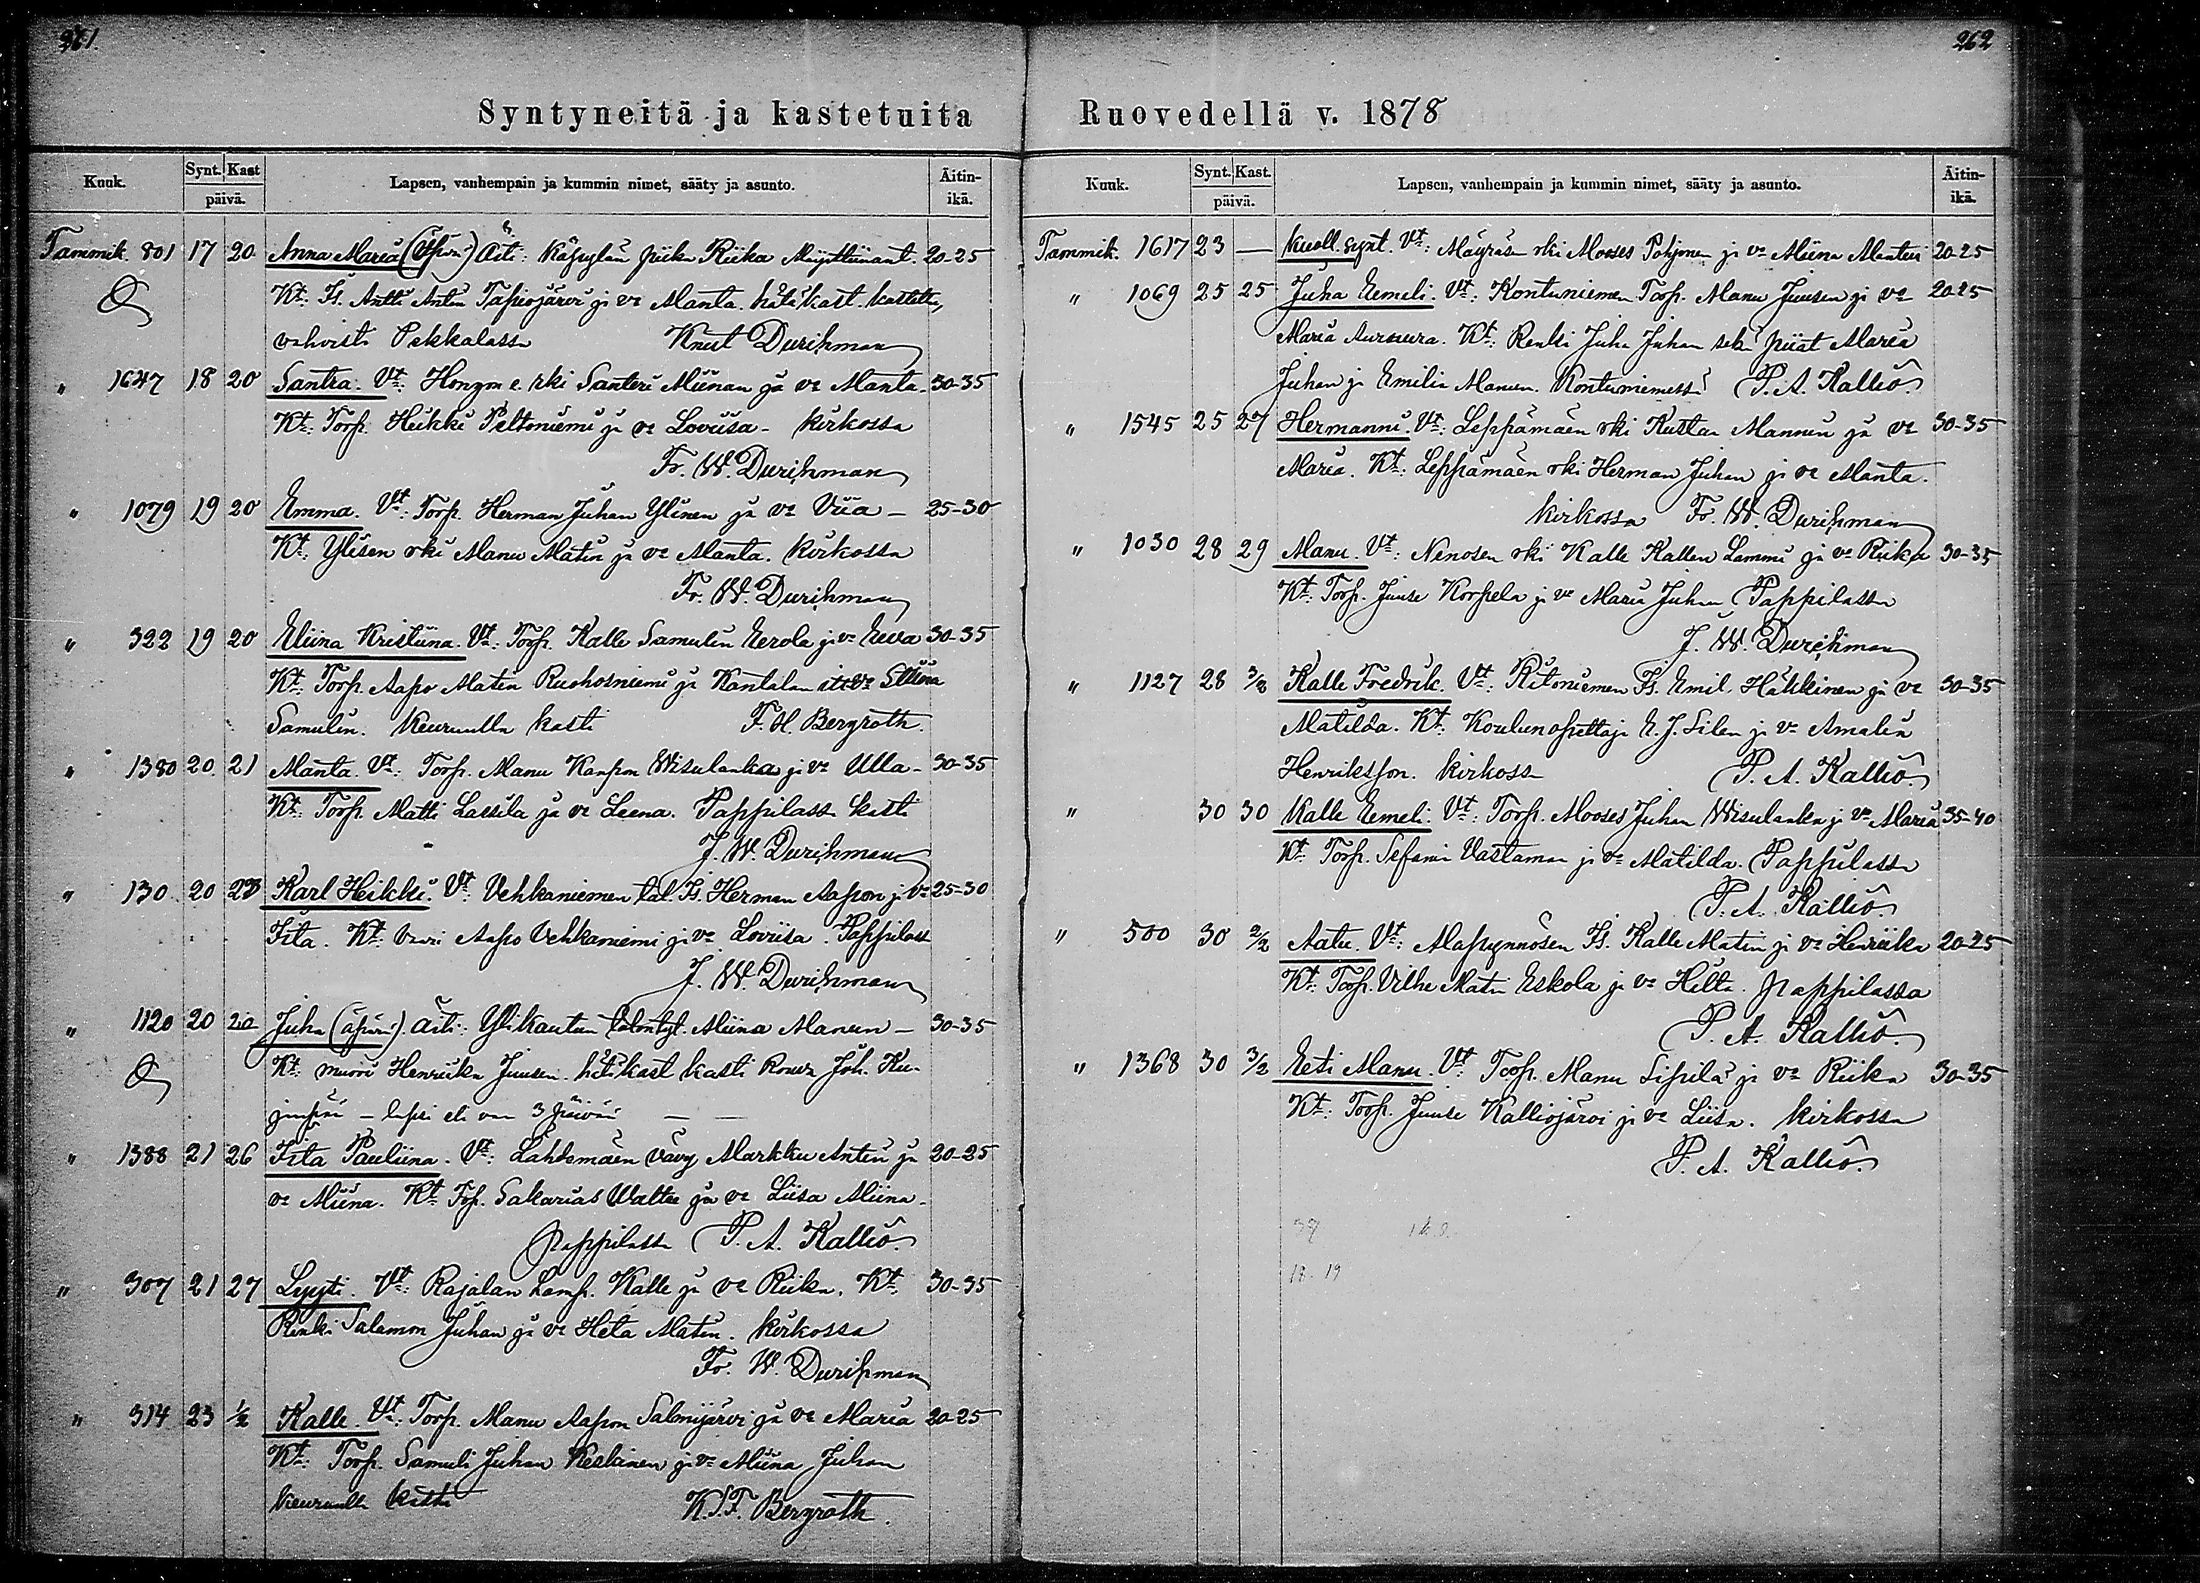 261.
Syntyneitä ja kastetuita
Kuuk.
Synt. Kast
päivä.
Lapsen, vanhempain ja kummin nimet, sääty ja asunto.
Äitin-
ikä.
Tammik. 801 17 20 Anna Maria (Äpärä) Äiti: Käpylän piika Riika 20-25
Kt: Is. Antti Antin Tapiojärvi ja vo Manta. hätäkast. kastettu,
vahvisti Pekkalassa Knut Durchman
" 1647 18 20 Santra. Vt: e. rki Santeri Miinan ja vo Manta 30-35
Kt: Torp. Heikki Peltoniemi ja vo Loviisa - kirkossa
Fr. W. Durchman
" 1079 19 20 Emma. Vt: Torp. Herman Juhan Ylinen ja vo Viia - 25-30
Kt: Ylisen rki Manu Matin ja vo Manta. kirkossa
Fr. W. Durchman
" 322 19 20 Eliina Kristiina. Vt: Torp. Kalle Samulin Eerola ja vo Eeva 30-35
Kt: Torp. Aapo Matin Ruohosniemi ja Kantalan Stiina
Samulin. Keuruulla kasti F. H. Bergroth.
" 1380 20 21 Manta. Vt: Torp. Manu Kaapon Wisulanka ja vo Ulla - 30-35
Kt: Torp. Matti Lassila ja vo Leena. Pappilassa kasti
J. W. Durchman
" 130 20 23 Karl Heikki. Vt: Vehkaniemen tal. Is. Herman Aapon ja vo 25-30
Iita. Kt: Aapo Vehkaniemi ja vo Loviisa. Pappilass
J. W. Durchman
" 1120 20 20 Juha (äpärä) Äiti: Ylikautun talontyt. Miina Manun - 30-35
Kt: muori Henriika Juusen. hätäkast kasti Rouva Joh. Ku-
- lapsi eli vaan 3 päivää
" 1388 21 26 Iita Pauliina. Vt: Lahdemäen vävy Markku Antin ja 20-25
vo Miina. Kt: Top. Sakarias Waltee ja vo Liisa Miina.
Pappilassa P. A. Kallio.
" 307 21 27 Lyyti. Vt: Rajalan Lamp. Kalle ja vo Riika. Kt. 30-35
Renki Salomon Juhan ja vo Heta Matin. kirkossa
Fr. W. Durchman
" 314 23 1/2 Kalle. Vt: Torp. Manu Aapon Salmijärvi ja vo Maria 20-25
Kt: Torp. Samuli Juhan Keskinen ja vo Miina Juhan
Keuruulla kasti K. J. F. Bergroth.
262
Ruovedellä v. 1878
Kuuk.
Synt. Kast.
päivä.
Lapsen, vanhempain ja kummin nimet, sääty ja asunto.
Äitin-
ikä.
Tammik. 1617 23 — Kuoll. synt. Vt: Mäyrän rki Mooses Pohjonen ja vo Miina Mantin 20-25
" 1069 25 25 Juha Eemeli. Vt: Kontuniemen Torp. Manu Juusen ja vo 20-25
Maria Auroora. Kt: Renki Juha Juhan sekä piiat Maria
Juhan ja Emilia Manun. Kontuniemessä P. A. Kallio.
" 1545 25 27 Hermanni. Vt: Leppämäen rki Kustaa Mannun ja vo 30-35
Maria. Kt: Leppämäen rki Herman Juhan ja vo Manta.
kirkossa Fr. W. Durchman
" 1030 28 29 Manu. Vt: Nenosen rki Kalle Kallen Lammi ja vo Riika 30-35
Kt: Torp. Juuse Korpela ja vo Maria Juhan Pappilassa
J. W. Durchman
" 1127 28 3/2 Kalle Fredrik. Vt: Ritoniemen Is. Emil. Häkkinen ja vo 30-35
Matilda. Kt: Koulunopettaja E. J. Silen ja vo Amalia
Henriksson. kirkoss P. A. Kallio.
" 30 30 Kalle Eemeli. Vt: Torp. Mooses Juhan Wisulanka ja vo Maria 35-40
Kt: Torp. Sefania Vastamaa ja vo Matilda. Pappilassa
P. A. Kallio.
" 500 30 2/2 Aatu. Vt: Mapynnösen Is. Kalle Matin ja vo Henriika 20-25
Kt: Torp. Vilhe Matin Eskola ja vo Hilta. pappilassa
P. A. Kallio.
" 1368 30 3/2 Eeti Manu. Vt: Torp. Manu Sipilä ja vo Riika 30-35
Kt: Torp. Juuse Kalliojärvi ja vo Liisa. kirkossa
P. A. Kallio.
37
18-19